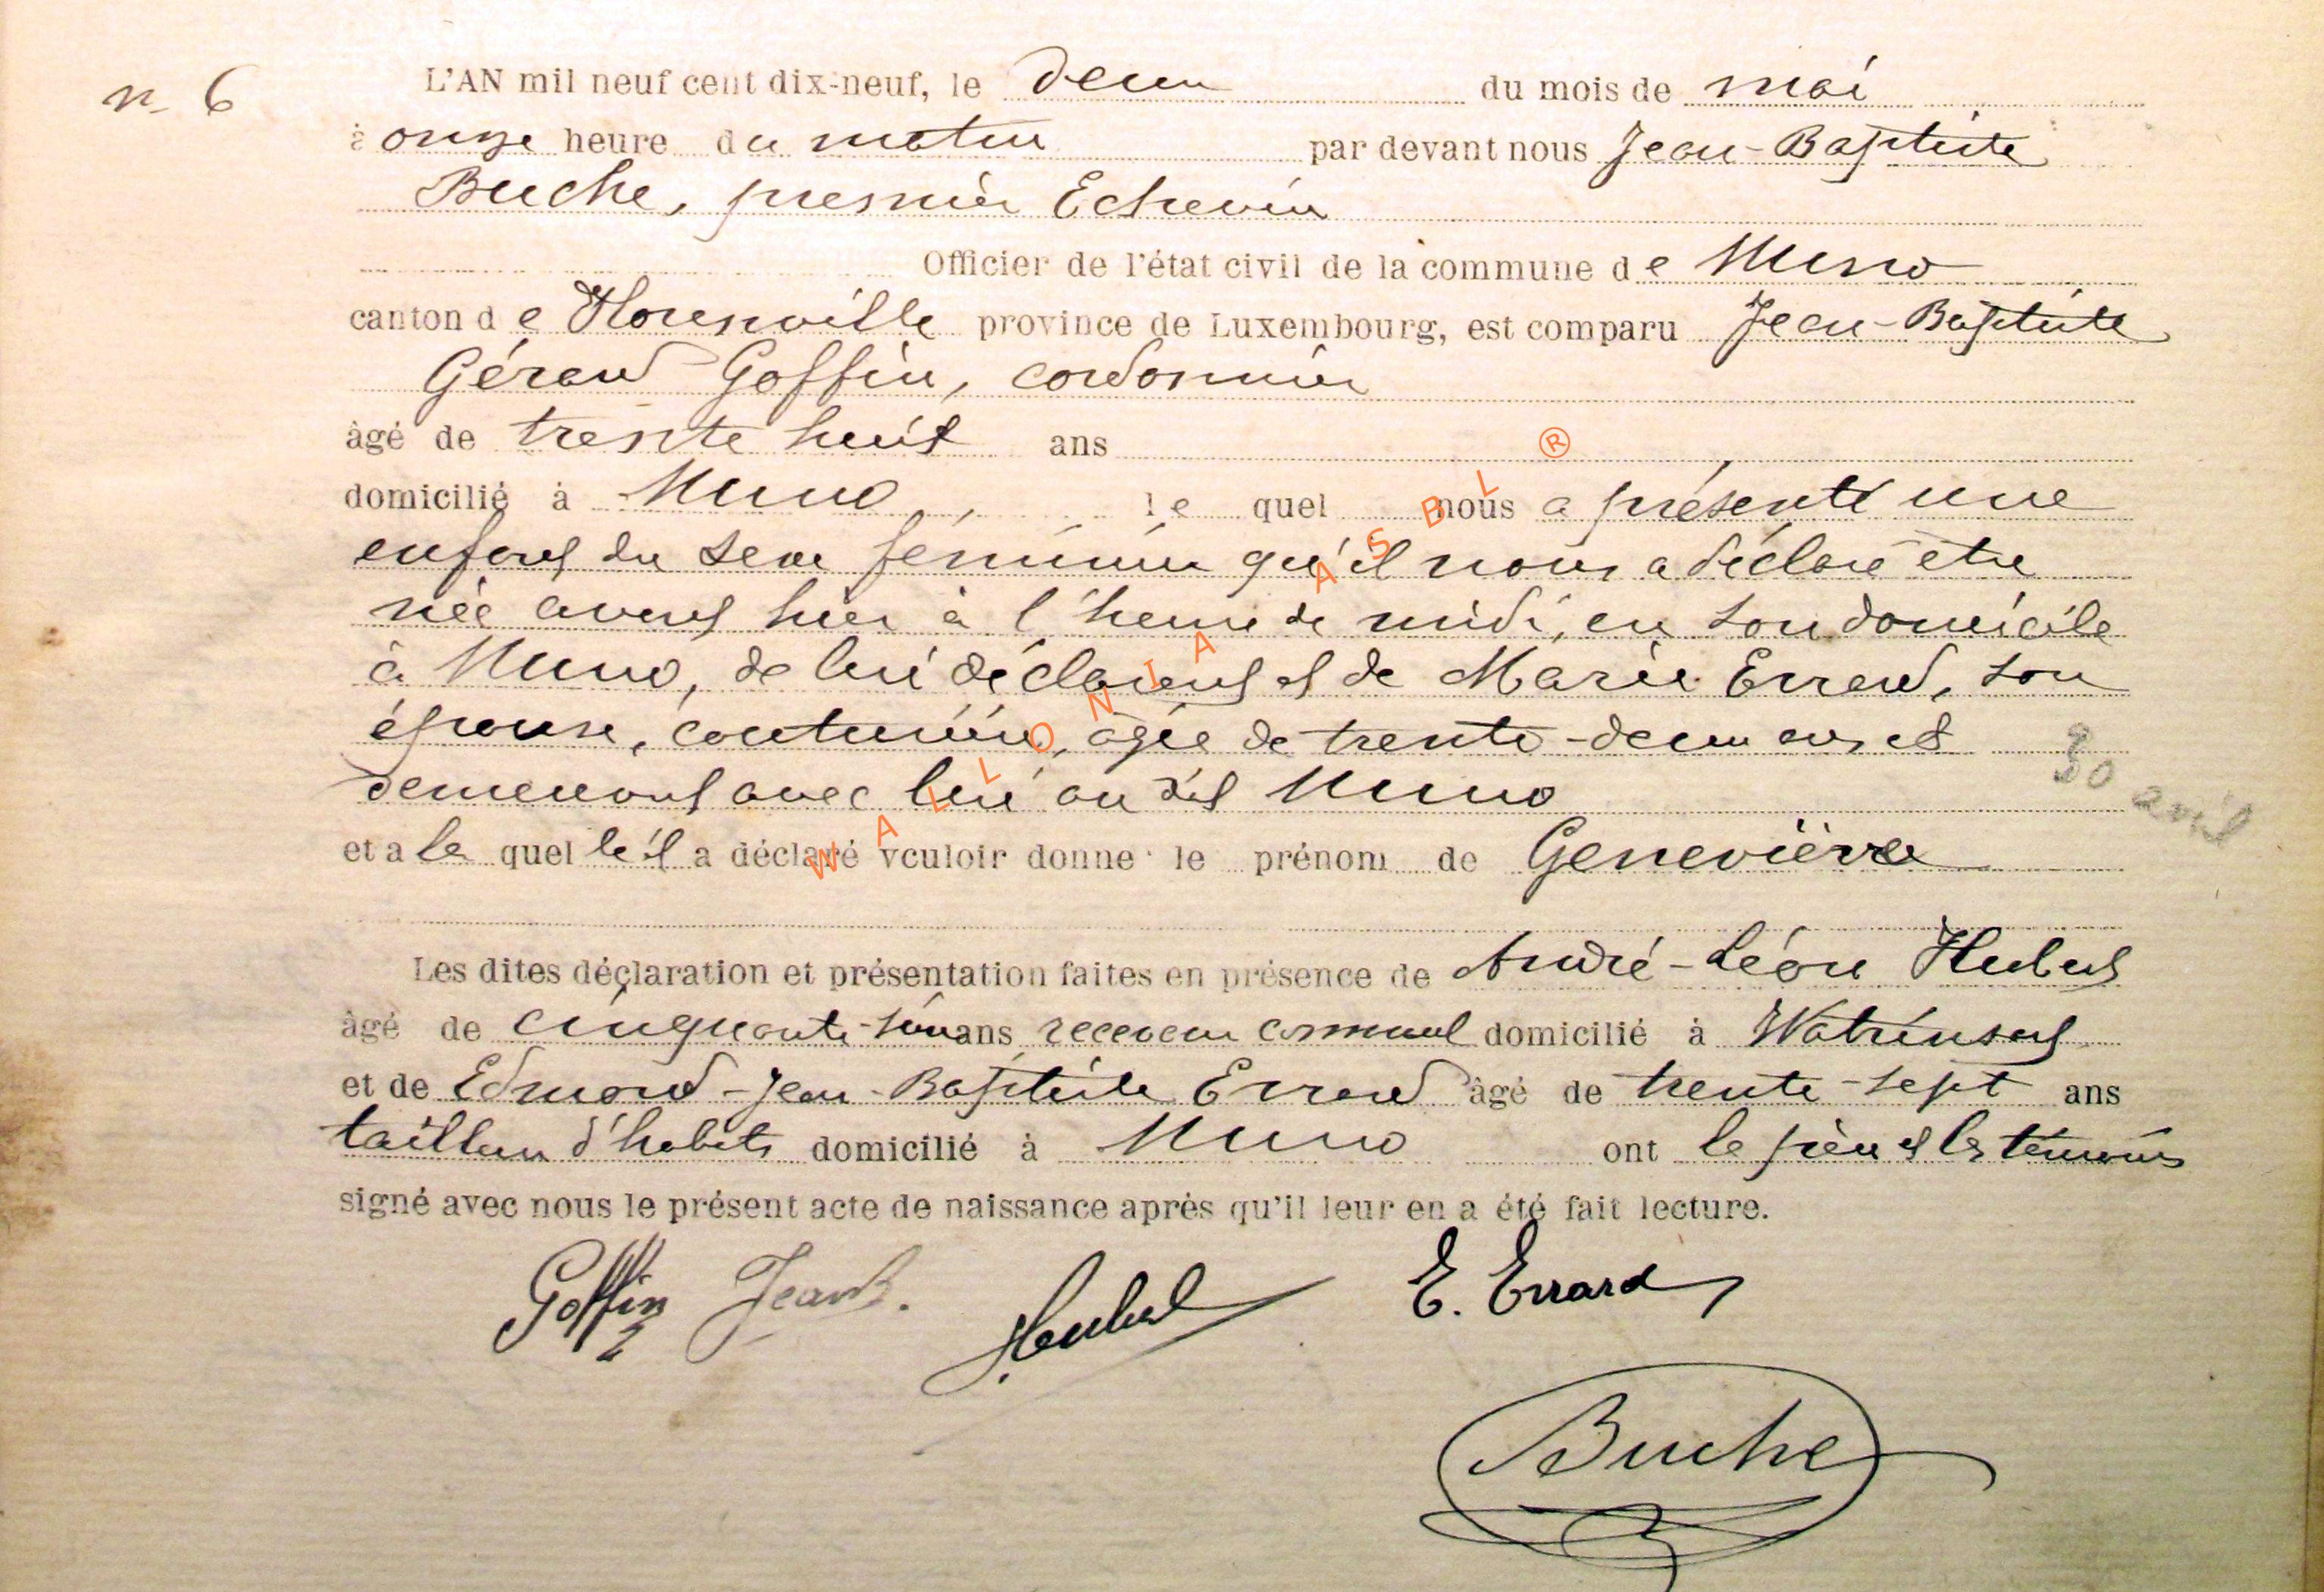 n° 6
L'AN mil neuf cent dix-neuf, le deux du mois de mai
à onze heure du matin par devant nous Jean-Baptiste
Buche, premier Echevin
Officier de l'état civil de la commune de Muno
canton de Florenville province de Luxembourg, est comparu Jean-Baptiste
Gérard Goffin, cordonnier
âgé de trente huit ans
domicilié à Muno, le quel nous a présenté une
enfant du sexe féminin qu'il nous a déclaré être
née avant hier à l'heure de midi, en son domicile
à Muno, de lui déclarant et de Marie Errard, son
épouse, couturière, âgée de trente-deux ans et
demeurant avec lui au dit Muno
30 avril
et a la quelle il a déclaré vouloir donner le prénom de Geneviève
Les dites déclaration et présentation faites en présence de André-Léon Hubert
âgé de cinquante- ans receveur communal domicilié à Watrinsart
et de Edmond-Jean-Baptiste Errard âgé de trente-sept ans
tailleur d'habits domicilié à Muno ont le père et les témoins
signé avec nous le présent acte de naissance après qu'il leur en a été fait lecture.
Goffin JeanB. Hubert E. Errard
Buche
WALLONIA ASBL ®